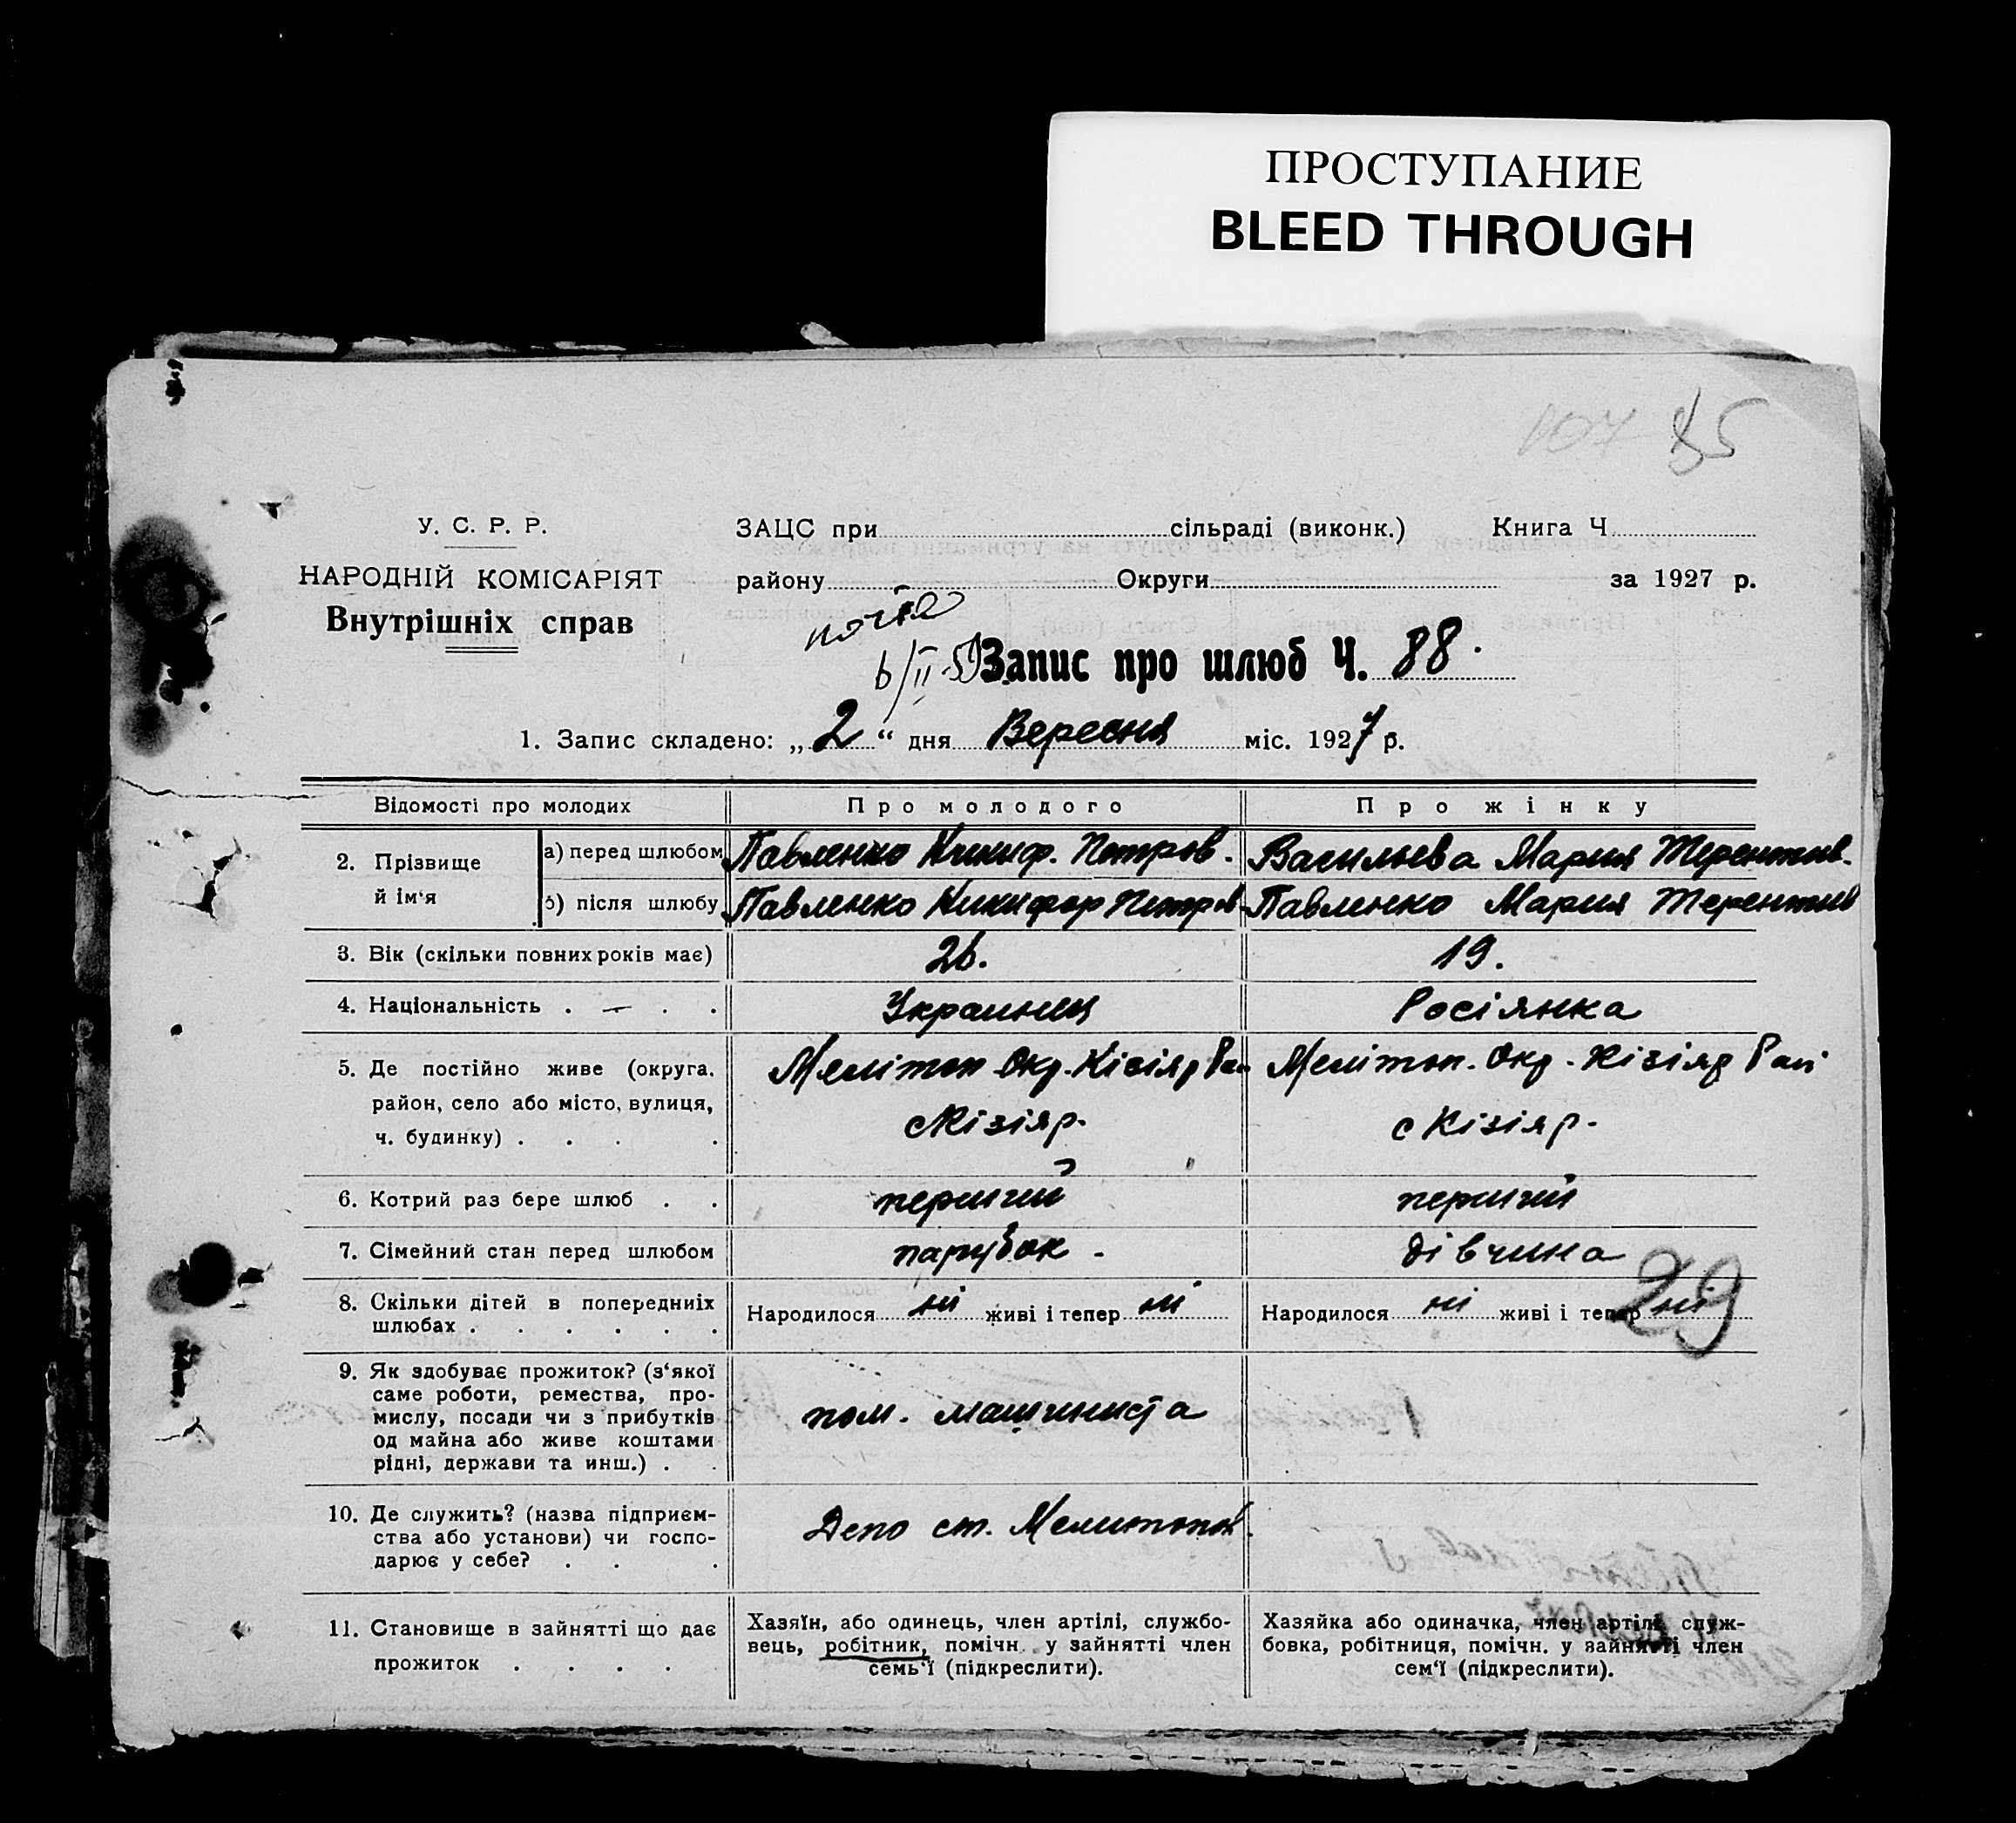 ПРОСТУПАНИЕ
BLEED THROUGH
107 85
У. С. Р. Р.
НАРОДНІЙ КОМІСАРІЯТ
Внутрішніх справ
ЗАЦС при сільраді (виконк.) Книга Ч.
району Округи за 1927 р.
6/II-59
Запис про шлюб Ч. 88.
1. Запис складено: „2“ дня Вересня міс. 1927 р.
Відомості про молодих Про молодого Про жінку
2. Прізвище й ім‘я
а) перед шлюбом Павленко Никиф. Петров. Васильева Мария Терентив.
б) після шлюбу Павленко Никифор Петров Павленко Мария Терентив
3. Вік (скільки повних років має) 26. 19.
4. Національність . . . Украинец Росіянка
5. Де постійно живе (округа, Мелітоп. Окр. Кізіяр Рай Мелітоп. Окр. Кізіяр Рай
район, село або місто, вулиця, с Кізіяр. с Кізіяр.
ч. будинку) . . . .
6. Котрий раз бере шлюб . . перший перший
7. Сімейний стан перед шлюбом парубок - дівчина
8. Скільки дітей в попередниїх Народилося ні живі і тепер ні Народилося ні живі і тепер ні
шлюбах . . . . . . 29
9. Як здобуває прожиток? (з‘якої
саме роботи, ремества, про-
мислу, посади чи з прибутків пом. машиниста
од майна або живе коштами
рідні, держави та инш.) . .
10. Де служить? (назва підприєм- Депо ст. Мелитополь.
ства або установи) чи госпо-
дарює у себе? . . .
11. Становище в зайнятті що дає
прожиток . . . .
Хазяїн, або одинець, член артілі, службо-
вець, робітник, помічн. у зайнятті член
семь‘ї (підкреслити).
Хазяйка або одиначка, член артілі, служ-
бовка, робітниця, помічн. у зайнятті член
сем‘ї (підкреслити).